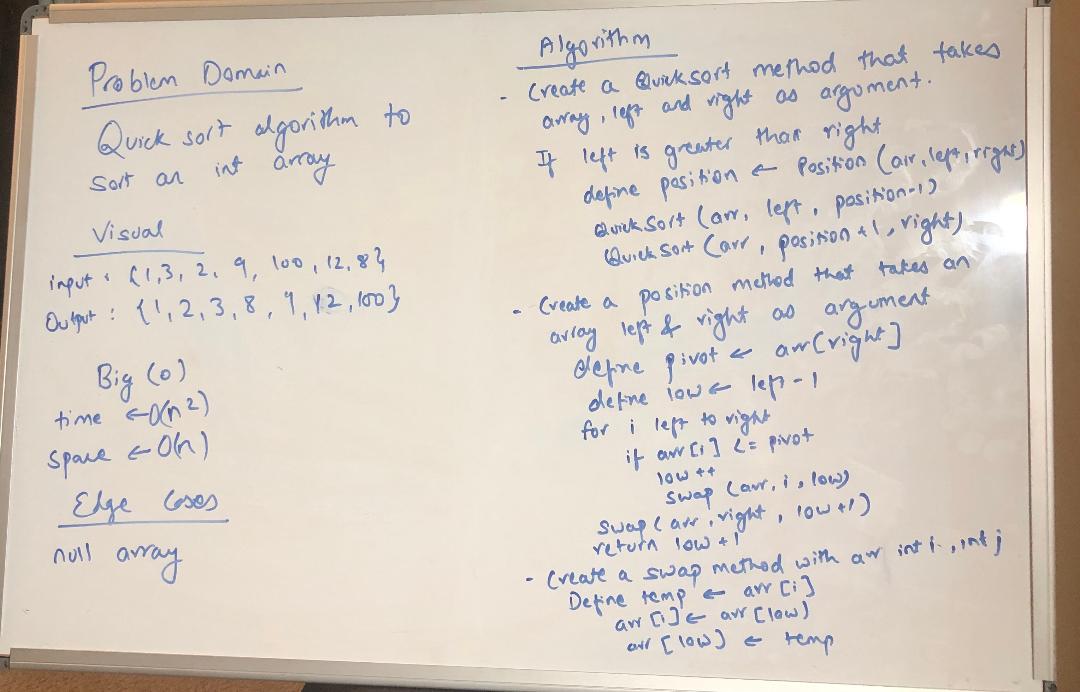 Problem Domain
Quick sort algorithm to
sort an int array
Visual
input : {1,3, 2, 9, 100, 12, 8}
Output : {1, 2, 3, 8, 9, 12, 100}
Big (o)
time ← O(n²)
space ← O(n)
Edge Cases
null array
Algorithm
- Create a Quicksort method that takes
array, left and right as argument.
If left is greater than right
define position ← Position (arr, left, right)
Quick Sort (arr, left, position-1)
Quick Sort (arr, position +1, right)
- Create a position method that takes an
array left & right as argument
define pivot ← arr[right]
define low ← left -1
for i left to right
if arr [i] <= pivot
low ++
swap (arr, i, low)
swap (arr, right, low +1)
return low +1
- Create a swap method with arr int i, int j
Define temp ← arr [i]
arr [i] ← arr [low)
arr [low] ← temp